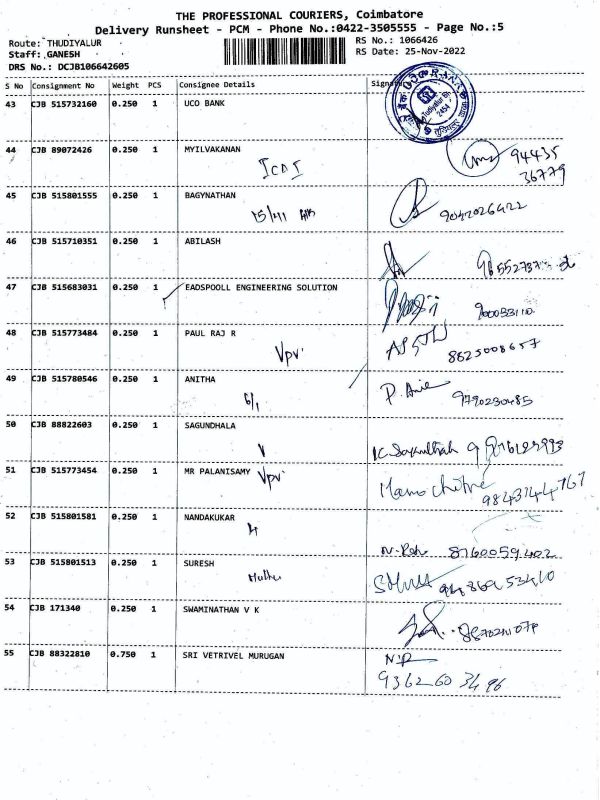 THE PROFESSIONAL COURIERS, Coimbatore
Delivery Runsheet - PCM - Phone No.:0422-3505555 - Page No.:5
Route: THUDIYALUR RS No.: 1066426
Staff: GANESH RS Date: 25-Nov-2022
DRS No.: DCJB106642605
S No Consignment No Weight PCS Consignee Details Signature
43 CJB 515732160 0.250 1 UCO BANK
44 CJB 89072426 0.250 1 MYILVAKANAN 94435
36779
45 CJB 515801555 0.250 1 BAGYNATHAN
9042026422
46 CJB 515710351 0.250 1 ABILASH
47 CJB 515683031 0.250 1 EADSPOLL ENGINEERING SOLUTION
48 CJB 515773484 0.250 1 PAUL RAJ R
Vpv 8625008657
49 CJB 515780546 0.250 1 ANITHA
6/1 9790230485
50 CJB 88822603 0.250 1 SAGUNDHALA
V
51 CJB 515773454 0.250 1 MR PALANISAMY
Vpv 9843144767
52 CJB 515801581 0.250 1 NANDAKUKAR
8760059402
53 CJB 515801513 0.250 1 SURESH
54 CJB 171340 0.250 1 SWAMINATHAN V K
55 CJB 88322810 0.750 1 SRI VETRIVEL MURUGAN
9362603496